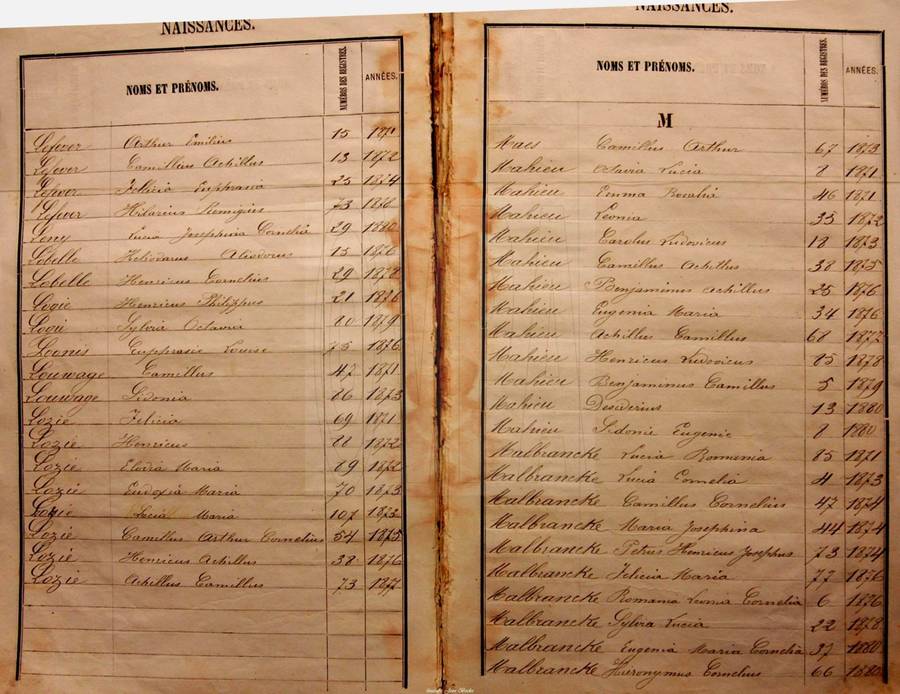 NAISSANCES.
NOMS ET PRÉNOMS. NUMÉROS DES REGISTRES. ANNÉES.
Lefever Arthur Emilius 15 1871
Lefever Camillus Achillus 13 1872
Lefever Felicia Euphrasia 25 1874
Lefever Hilarius Remigius 73 1876
Leny Lucia Josephina Cornelia 29 1880
Lobelle Heliodorus Aliodorus 15 1876
Lobelle Henricus Cornelius 29 1878
Logie Henricus Philippus 21 1876
Logie Sylvia Octavia 1879
Loonis Euphrasie Louise 75 1876
Louwage Camillus 47 1871
Louwage Sidonia 1875
Lozie Felicia 69 1871
Lozie Henricus 1872
Lozie Elodia Maria 1872
Lozie Eudoxia Maria 70 1873
Lozie Lucia Maria 107 1873
Lozie Camillus Arthur Cornelius 54 1875
Lozie Henricus Achillus 38 1876
Lozie Achillus Camillus 73 1877
NAISSANCES.
NOMS ET PRÉNOMS. NUMÉROS DES REGISTRES. ANNÉES.
M
Maes Camillus Arthur 67 1873
Mahieu Octavia Lucia 8 1871
Mahieu Emma Rosalie 46 1871
Mahieu Leonia 35 1872
Mahieu Carolus Ludovicus 18 1873
Mahieu Camillus Achillus 38 1875
Mahieu Benjaminus Achillus 25 1876
Mahieu Eugenia Maria 34 1876
Mahieu Achillus Camillus 68 1877
Mahieu Henricus Ludovicus 85 1878
Mahieu Benjaminus Camillus 5 1879
Mahieu Desiderius 13 1880
Mahieu Sidonie Eugenie 8 1880
Malbrancke Lucia Romenia 85 1871
Malbrancke Lucia Cornelia 4 1873
Malbrancke Camillus Cornelius 47 1874
Malbrancke Maria Josephina 44 1874
Malbrancke Petrus Henricus Josephus 73 1874
Malbrancke Felicia Maria 77 1876
Malbrancke Romania Leonia Cornelia 6 1876
Malbrancke Sylvia Lucia 22 1878
Malbrancke Eugenia Maria Cornelia 37 1880
Malbrancke Hieronymus Cornelius 66 1880